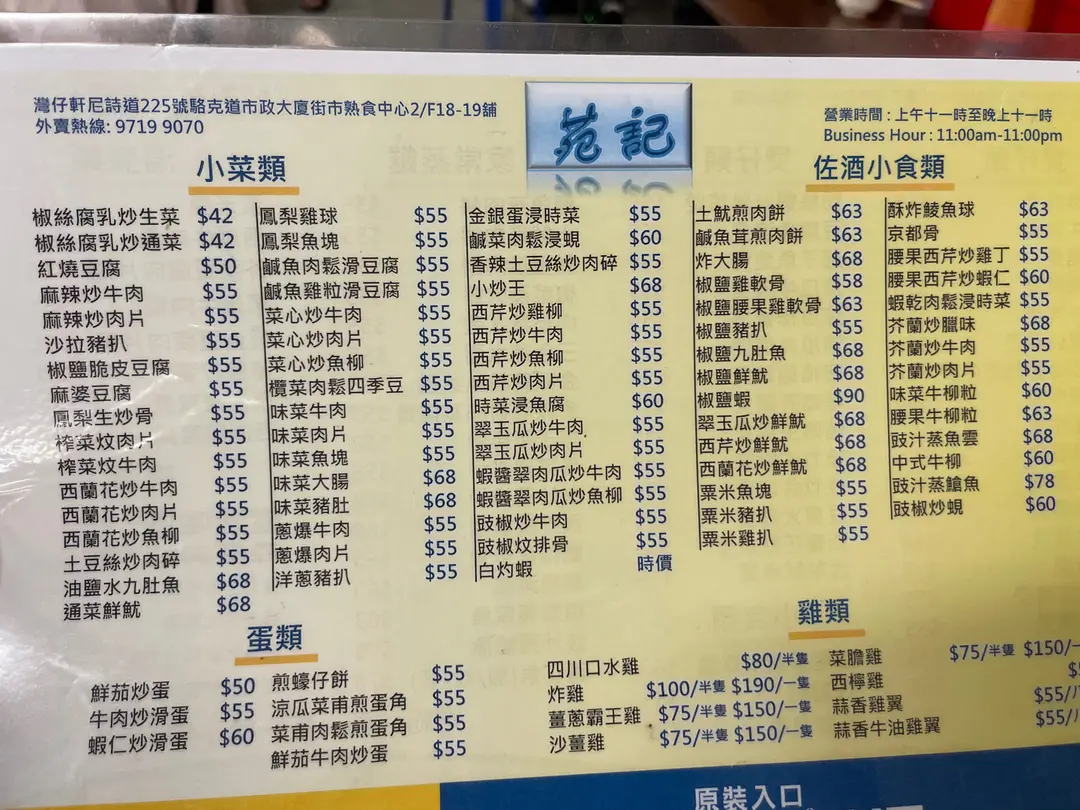 灣仔軒尼詩道225號駱克道市政大廈街市熟食中心2/F18-19舖
外賣熱線: 9719 9070
苑記
營業時間 : 上午十一時至晚上十一時
Business Hour : 11:00am-11:00pm
小菜類
椒絲腐乳炒生菜 $42
椒絲腐乳炒通菜 $42
紅燒豆腐 $50
麻辣炒牛肉 $55
麻辣炒肉片 $55
沙拉豬扒 $55
椒鹽脆皮豆腐 $55
麻婆豆腐 $55
鳳梨生炒骨 $55
榨菜炆肉片 $55
榨菜炆牛肉 $55
西蘭花炒牛肉 $55
西蘭花炒肉片 $55
西蘭花炒魚柳 $55
土豆絲炒肉碎 $55
油鹽水九肚魚 $68
通菜鮮魷 $68
鳳梨雞球 $55
鳳梨魚塊 $55
鹹魚肉鬆滑豆腐 $55
鹹魚雞粒滑豆腐 $55
菜心炒牛肉 $55
菜心炒肉片 $55
菜心炒魚柳 $55
欖菜肉鬆四季豆 $55
味菜牛肉 $55
味菜肉片 $55
味菜魚塊 $55
味菜大腸 $68
味菜豬肚 $68
蔥爆牛肉 $55
蔥爆肉片 $55
洋蔥豬扒 $55
金銀蛋浸時菜 $55
鹹菜肉鬆浸蜆 $60
香辣土豆絲炒肉碎 $55
小炒王 $68
西芹炒雞柳 $55
西芹炒牛肉 $55
西芹炒魚柳 $55
西芹炒肉片 $55
時菜浸魚腐 $60
翠玉瓜炒牛肉 $55
翠玉瓜炒肉片 $55
蝦醬翠肉瓜炒牛肉 $55
蝦醬翠肉瓜炒魚柳 $55
豉椒炒牛肉 $55
豉椒炆排骨 $55
白灼蝦 時價
佐酒小食類
土魷煎肉餅 $63
鹹魚茸煎肉餅 $63
炸大腸 $68
椒鹽雞軟骨 $58
椒鹽腰果雞軟骨 $63
椒鹽豬扒 $55
椒鹽九肚魚 $68
椒鹽鮮魷 $68
椒鹽蝦 $90
翠玉瓜炒鮮魷 $68
西芹炒鮮魷 $68
西蘭花炒鮮魷 $68
粟米魚塊 $55
粟米豬扒 $55
粟米雞扒 $55
酥炸鯪魚球 $63
京都骨 $55
腰果西芹炒雞丁 $55
腰果西芹炒蝦仁 $60
蝦乾肉鬆浸時菜 $55
芥蘭炒臘味 $68
芥蘭炒牛肉 $55
芥蘭炒肉片 $55
味菜牛柳粒 $60
腰果牛柳粒 $63
豉汁蒸魚雲 $68
中式牛柳 $60
豉汁蒸鱠魚 $78
豉椒炒蜆 $60
蛋類
鮮茄炒蛋 $50
牛肉炒滑蛋 $55
蝦仁炒滑蛋 $60
煎蠔仔餅 $55
涼瓜菜甫煎蛋角 $55
菜甫肉鬆煎蛋角 $55
鮮茄牛肉炒蛋 $55
雞類
四川口水雞 $80/半隻
炸雞 $100/半隻 $190/一隻
薑蔥霸王雞 $75/半隻 $150/一隻
沙薑雞 $75/半隻 $150/一隻
菜膽雞 $75/半隻 $150/一
西檸雞
蒜香雞翼 $55/
蒜香牛油雞翼 $55/
原裝入口